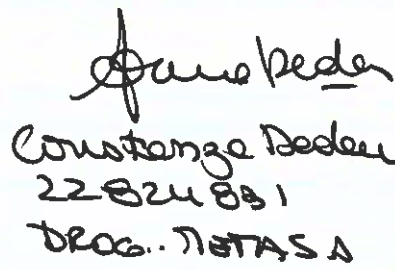 Constanza Deden
22824831
DROG.. METASA